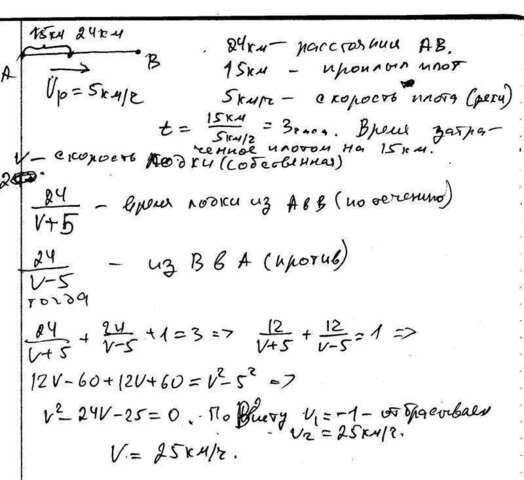 15км 24км
A B
Vр = 5км/ч
24км — расстояния AB.
15км - проплыл плот
5км/ч - скорость плота (реки)
t = 15км/5км/ч = 3часа. Время затра-
ченное плотом на 15км.
V - скорость лодки (собственная)
24/V+5 - время лодки из A в B (по течению)
24/V-5 - из B в A (против)
тогда
24/V+5 + 24/V-5 + 1 = 3 => 12/V+5 + 12/V-5 = 1 =>
12V-60+12V+60 = V²-5² =>
V²-24V-25=0. По Виету V₁=-1 - отбрасываем
V₂=25км/ч.
V = 25км/ч.